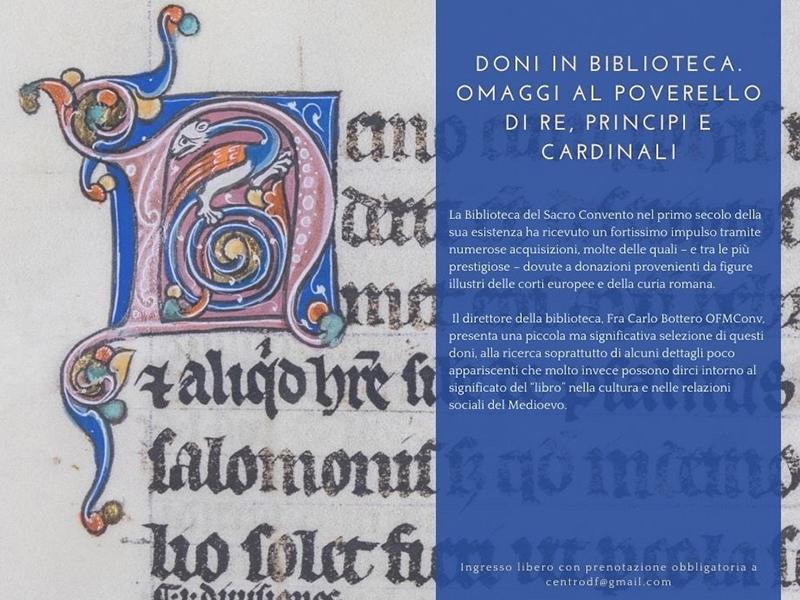 DONI IN BIBLIOTECA.
OMAGGI AL POVERELLO
DI RE, PRINCIPI E
CARDINALI
La Biblioteca del Sacro Convento nel primo secolo della
sua esistenza ha ricevuto un fortissimo impulso tramite
numerose acquisizioni, molte delle quali – e tra le più
prestigiose – dovute a donazioni provenienti da figure
illustri delle corti europee e della curia romana.
Il direttore della biblioteca, Fra Carlo Bottero OFMConv,
presenta una piccola ma significativa selezione di questi
doni, alla ricerca soprattutto di alcuni dettagli poco
appariscenti che molto invece possono dirci intorno al
significato del "libro" nella cultura e nelle relazioni
sociali del Medioevo.
Ingresso libero con prenotazione obbligatoria a
centrodf@gmail.com